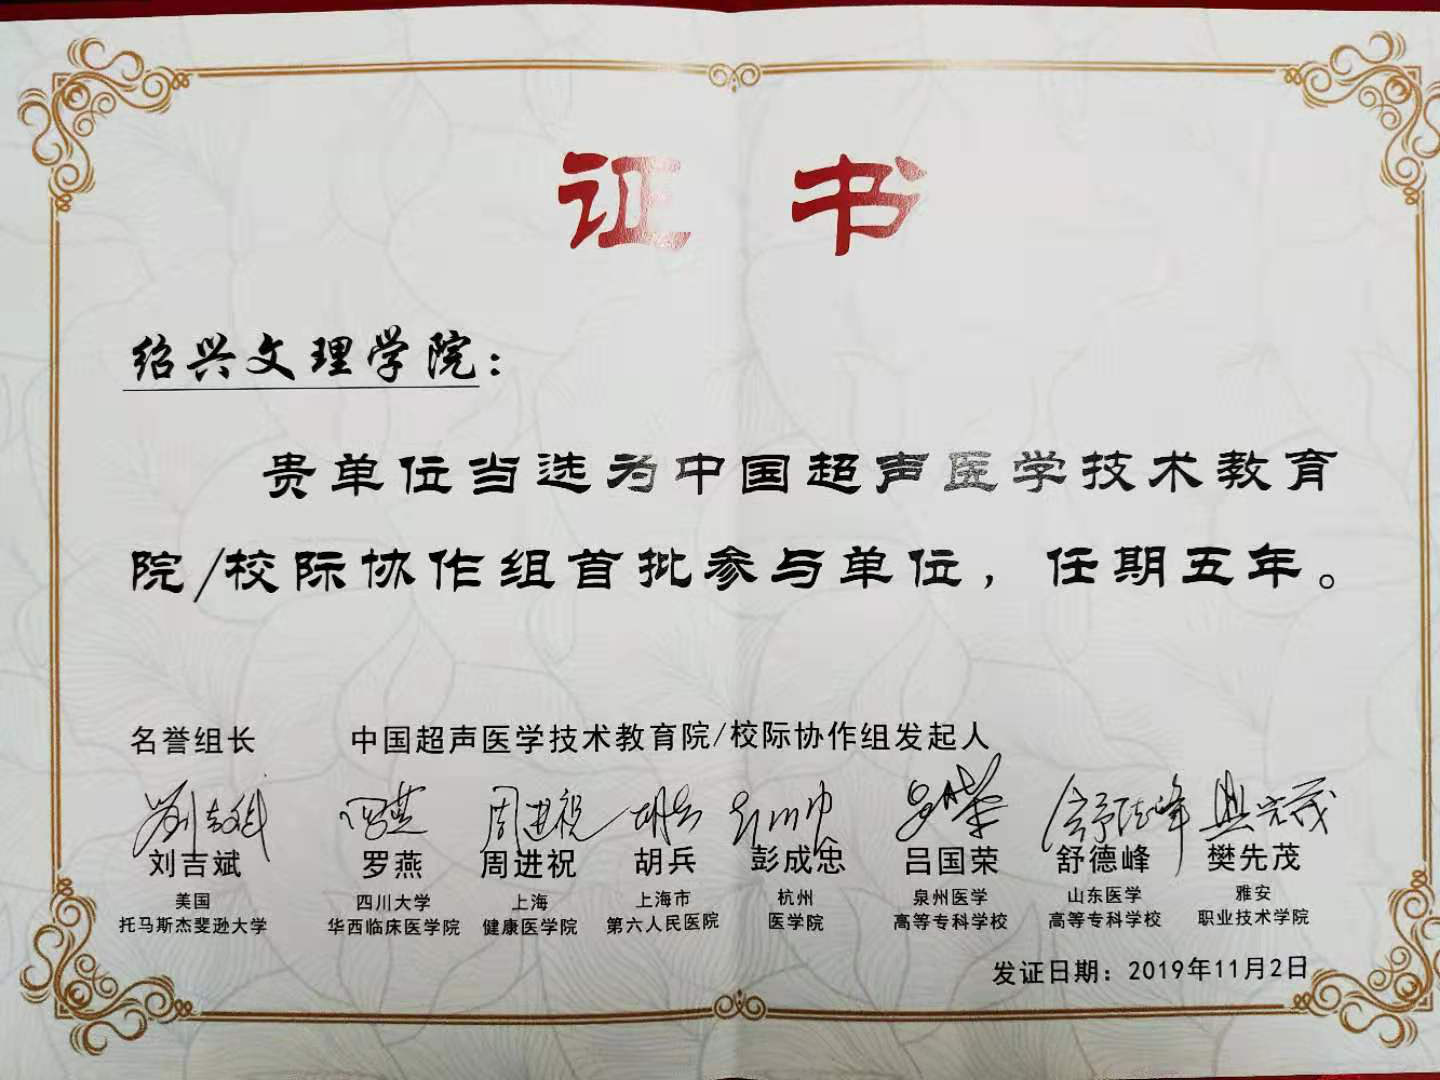 证书
绍兴文理学院：
贵单位当选为中国超声医学技术教育
院/校际协作组首批参与单位，任期五年。
名誉组长 中国超声医学技术教育院/校际协作组发起人
刘吉斌 罗燕 周进祝 胡兵 彭成忠 吕国荣 舒德峰 樊先茂
美国 四川大学 上海 上海市 杭州 泉州医学 山东医学 雅安
托马斯杰斐逊大学 华西临床医学院 健康医学院 第六人民医院 医学院 高等专科学校 高等专科学校 职业技术学院
发证日期：2019年11月2日